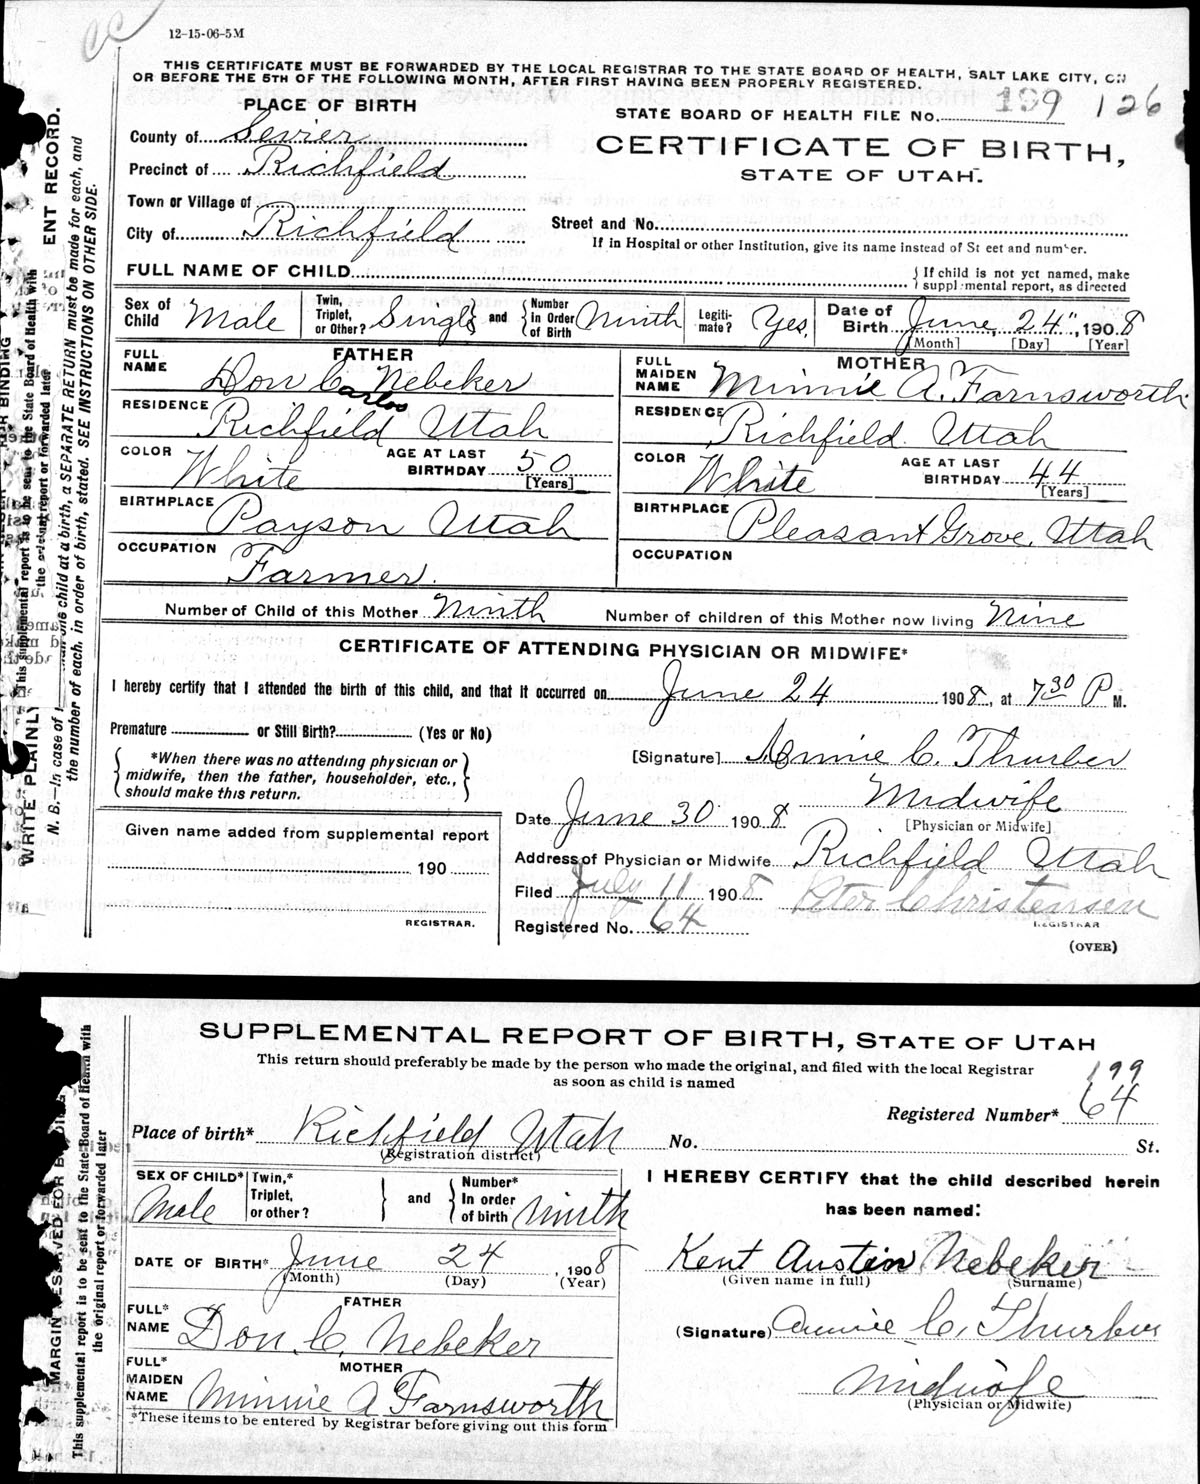 12-15-06-5M
THIS CERTIFICATE MUST BE FORWARDED BY THE LOCAL REGISTRAR TO THE STATE BOARD OF HEALTH, SALT LAKE CITY, ON
OR BEFORE THE 5TH OF THE FOLLOWING MONTH, AFTER FIRST HAVING BEEN PROPERLY REGISTERED.
PLACE OF BIRTH
STATE BOARD OF HEALTH FILE No. 199 126
County of Sevier
CERTIFICATE OF BIRTH,
STATE OF UTAH.
Precinct of Richfield
Town or Village of
City of Richfield
Street and No.
If in Hospital or other Institution, give its name instead of St eet and number.
FULL NAME OF CHILD
If child is not yet named, make
suppl mental report, as directed
Sex of Child Male Twin, Triplet, or Other? Single and Number In Order of Birth Ninth Legiti-mate? Yes, Date of Birth June, 24", 1908
[Month] [Day] [Year]
FATHER MOTHER
FULL NAME Don C Nebeker
Carlos
FULL MAIDEN NAME Minnie A. Farnsworth
RESIDENCE Richfield Utah RESIDENCE Richfield. Utah
COLOR White AGE AT LAST BIRTHDAY 50 [Years] COLOR White AGE AT LAST BIRTHDAY 44 [Years]
BIRTHPLACE Payson Utah BIRTHPLACE Pleasant Grove, Utah
OCCUPATION Farmer. OCCUPATION
Number of Child of this Mother Ninth Number of children of this Mother now living Nine
CERTIFICATE OF ATTENDING PHYSICIAN OR MIDWIFE*
I hereby certify that I attended the birth of this child, and that it occurred on June 24 1908, at 7 30 P M.
Premature or Still Birth? (Yes or No)
*When there was no attending physician or
midwife, then the father, householder, etc.,
should make this return.
[Signature] Annie C. Thurber
Midwife
[Physician or Midwife]
Date June 30 1908
Given name added from supplemental report
190
REGISTRAR.
Address of Physician or Midwife Richfield Utah
Filed July 11 1908 Peter Christensen
REGISTRAR
Registered No. 64
(OVER)
WRITE PLAINLY
ENT RECORD.
N. B.—In case of
one child at a birth, a SEPARATE RETURN must be made for each, and
the number of each, in order of birth, stated. SEE INSTRUCTIONS ON OTHER SIDE.
This supplemental report is to be sent to the State Board of Health with
the original report or forwarded later
SUPPLEMENTAL REPORT OF BIRTH, STATE OF UTAH
This return should preferably be made by the person who made the original, and filed with the local Registrar
as soon as child is named
199
Registered Number* 64
Place of birth* Richfield Utah No. St.
(Registration district)
SEX OF CHILD* Male Twin,* Triplet, or other? and Number* In order of birth ninth
I HEREBY CERTIFY that the child described herein
has been named:
DATE OF BIRTH* June 24, 1908
(Month) (Day) (Year)
Kent Austin Nebeker
(Given name in full) (Surname)
FATHER
FULL* NAME Don. C. Nebeker
(Signature) Annie C. Thurber
MOTHER
FULL* MAIDEN NAME Minnie A Farnsworth
midwife
(Physician or Midwife)
*These items to be entered by Registrar before giving out this form
MARGIN RESERVED FOR BINDING
This supplemental report is to be sent to the State Board of Health with
the original report or forwarded later